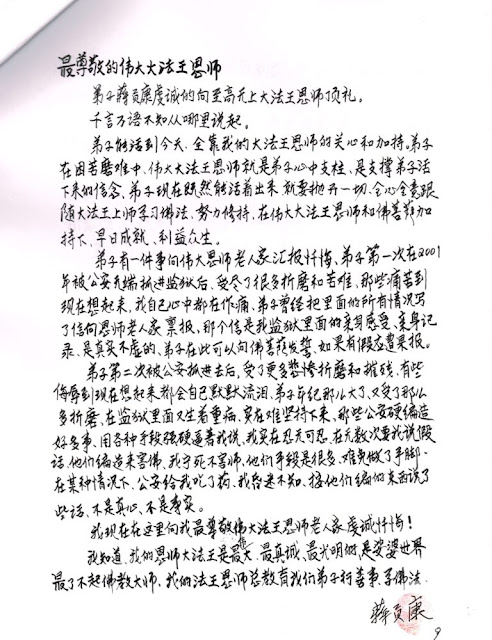 最尊敬的伟大大法王恩师
弟子蒋贡康虔诚的向至高无上大法王恩师顶礼。
千言万语不知从哪里说起。
弟子能活到今天、全靠我的大法王恩师的关心和加持。弟子
在困苦磨难中、伟大大法王恩师就是弟子心中支柱、是支撑弟子活
下来的信念、弟子现在既然能活着出来 就要抛开一切、全心全意跟
随大法王上师学习佛法、努力修持、在伟大大法王恩师和佛菩萨加
持下、早日成就、利益众生。
弟子有一件事向伟大恩师老人家汇报忏悔、弟子第一次在2001
年被公安无端抓进监狱后、受尽了很多折磨和苦难、那些痛苦到
现在想起来、我自己心中都在作痛、弟子曾经把里面的所有情况写
了信向恩师老人家 禀报、那个信是我监狱里面的亲身感受、亲身记
录、是真实不虚的、弟子在此可以向佛菩萨发誓、如果有假应遭果报。
弟子第二次被公安抓进去后、受了更多悲惨折磨和摧残、有些
侮辱到现在想起来都会自己默默流泪、弟子年纪那么大了、又受了那么
多折磨、在监狱里面又生着重病、实在难坚持下来、那些公安硬编造
好多事、用各种手段强硬逼着我说、我实在忍无可忍、在无数次要我说假
话、他们编造来害佛、我宁死不害师、他们手段是很多、难免做了手脚、
在某种情况下、公安给我吃了药、我昏迷不知、接他们编的东西说了
些话、不是真心、不是事实。
我现在在这里向我最尊敬伟大法王恩师老人家虔诚忏悔！
我知道、我的恩师大法王是最大、最真诚、最光明的、是娑婆世界
最了不起佛教大师、我的法王恩师总教育我们弟子行善事、学佛法
蒋贡康
9